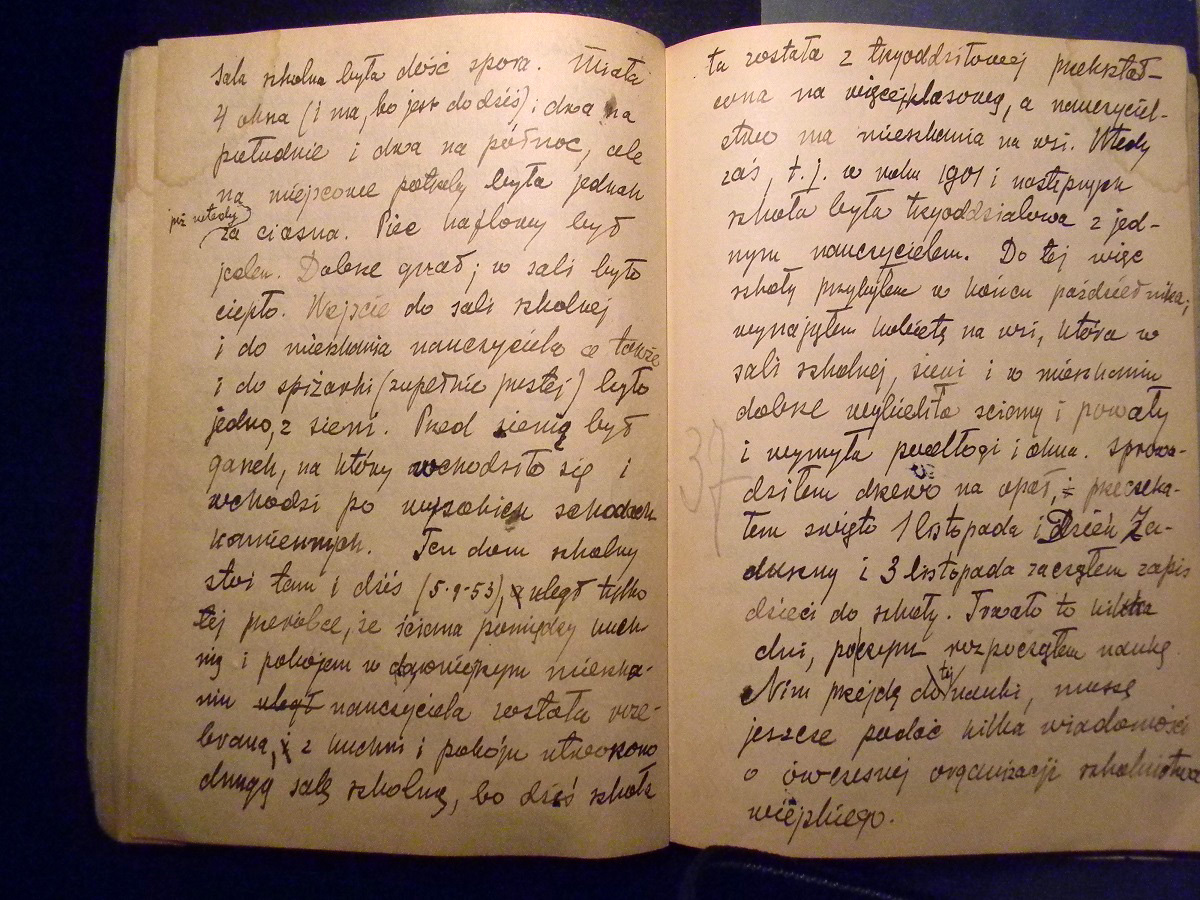 Sala szkolna była dość spora. Miała
4 okna (i ma, bo jest do dziś); dwa na
południe i dwa na północ, ale
na miejscowe potrzeby była jednak
już wtedy
za ciasna. Piec kaflowy był
jeden. Dobrze grzał; w sali było
ciepło. Wejście do sali szkolnej
i do mieszkania nauczyciela a także
i do spiżarki (zupełnie pustej) było
jedno, z sieni. Przed sienią był
ganek, na który wchodziło się i
wchodzi po wysokich schodach
kamiennych. Ten dom szkolny
stoi tam i dziś (5-9-53), a uległ tylko
tej przeróbce, że ściana pomiędzy kuch-
nią i pokojem w dawniejszym mieszka-
niu uległ nauczyciela została roze-
braną, i z kuchni i pokoju utworzono
drugą salę szkolną, bo dziś szkoła
ta została z trzyoddziłowej przekształ-
cona na więcejklasową, a nauczyciel-
stwo ma mieszkania na wsi. Wtedy
zaś, t. j. w roku 1901 i następnym
szkoła była trzyoddziałowa z jed-
nym nauczycielem. Do tej więc
szkoły przybyłem w końcu października;
wynająłem kobietę na wsi, która w
sali szkolnej, sieni i w mieszkaniu
dobrze wybieliła ściany i powały
i wymyła podłogi i okna. Sprowa-
37
dziłem drzewo na opał, i przeczeka-
łem święto 1 listopada i Dzień Za-
duszny i 3 listopada zacząłem zapis
dzieci do szkoły. Trwało to kilka
dni, poczym rozpocząłem naukę.
Nim przejdę do tej nauki, muszę
jeszcze podać kilka wiadomości
o ówczesnej organizacji szkolnictwa
wiejskiego.